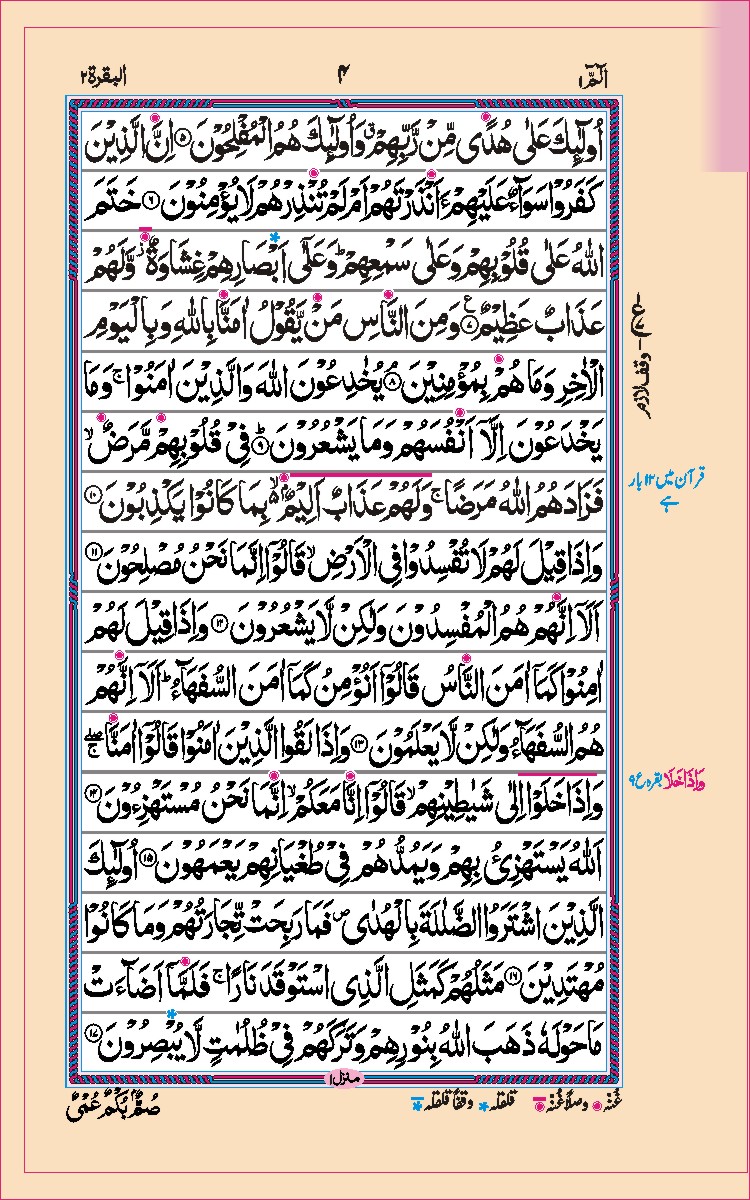 الٓمّٓ ۱
۴
البقرة ۲
اُولٰٓئِكَ عَلٰى هُدًى مِّنْ رَّبِّهِمْ ۗ وَاُولٰٓئِكَ هُمُ الْمُفْلِحُوْنَ ۵ اِنَّ الَّذِيْنَ
كَفَرُوْا سَوَآءٌ عَلَيْهِمْ ءَاَنْذَرْتَهُمْ اَمْ لَمْ تُنْذِرْهُمْ لَا يُؤْمِنُوْنَ ۶ خَتَمَ
اللّٰهُ عَلٰى قُلُوْبِهِمْ وَعَلٰى سَمْعِهِمْ ؕ وَعَلٰٓى اَبْصَارِهِمْ غِشَاوَةٌ ز وَّلَهُمْ
عَذَابٌ عَظِيْمٌ ۷ ع وَمِنَ النَّاسِ مَنْ يَّقُوْلُ اٰمَنَّا بِاللّٰهِ وَبِالْيَوْمِ
الْاٰخِرِ وَمَا هُمْ بِمُؤْمِنِيْنَ ۘ ۸ يُخٰدِعُوْنَ اللّٰهَ وَالَّذِيْنَ اٰمَنُوْا ۚ وَمَا
يَخْدَعُوْنَ اِلَّآ اَنْفُسَهُمْ وَمَا يَشْعُرُوْنَ ؕ ۹ فِيْ قُلُوْبِهِمْ مَّرَضٌ ۙ
فَزَادَهُمُ اللّٰهُ مَرَضًا ۚ وَلَهُمْ عَذَابٌ اَلِيْمٌۢ ۙ۬ بِمَا كَانُوْا يَكْذِبُوْنَ ۱۰
وَاِذَا قِيْلَ لَهُمْ لَا تُفْسِدُوْا فِي الْاَرْضِ ۙ قَالُوْٓا اِنَّمَا نَحْنُ مُصْلِحُوْنَ ۱۱
اَلَآ اِنَّهُمْ هُمُ الْمُفْسِدُوْنَ وَلٰكِنْ لَّا يَشْعُرُوْنَ ۱۲ وَاِذَا قِيْلَ لَهُمْ
اٰمِنُوْا كَمَآ اٰمَنَ النَّاسُ قَالُوْٓا اَنُؤْمِنُ كَمَآ اٰمَنَ السُّفَهَآءُ ؕ اَلَآ اِنَّهُمْ
هُمُ السُّفَهَآءُ وَلٰكِنْ لَّا يَعْلَمُوْنَ ۱۳ وَاِذَا لَقُوا الَّذِيْنَ اٰمَنُوْا قَالُوْٓا اٰمَنَّا ۖۚ
وَاِذَا خَلَوْا اِلٰى شَيٰطِيْنِهِمْ ۙ قَالُوْٓا اِنَّا مَعَكُمْ ۙ اِنَّمَا نَحْنُ مُسْتَهْزِءُوْنَ ۱۴
اَللّٰهُ يَسْتَهْزِئُ بِهِمْ وَيَمُدُّهُمْ فِيْ طُغْيَانِهِمْ يَعْمَهُوْنَ ۱۵ اُولٰٓئِكَ
الَّذِيْنَ اشْتَرَوُا الضَّلٰلَةَ بِالْهُدٰى ص فَمَا رَبِحَتْ تِّجَارَتُهُمْ وَمَا كَانُوْا
مُهْتَدِيْنَ ۱۶ مَثَلُهُمْ كَمَثَلِ الَّذِي اسْتَوْقَدَ نَارًا ۚ فَلَمَّآ اَضَآءَتْ
مَا حَوْلَهٗ ذَهَبَ اللّٰهُ بِنُوْرِهِمْ وَتَرَكَهُمْ فِيْ ظُلُمٰتٍ لَّا يُبْصِرُوْنَ ۱۷
منزل ۱
وقف لازم
قرآن میں ۱۲ بار
ہے
وَاِذَا خَلَا بقرہ ع ۹
غُنّہ وصلاً غُنّہ قلقلہ وقفاً قلقلہ
صُمٌّۢ بُكْمٌ عُمْيٌ